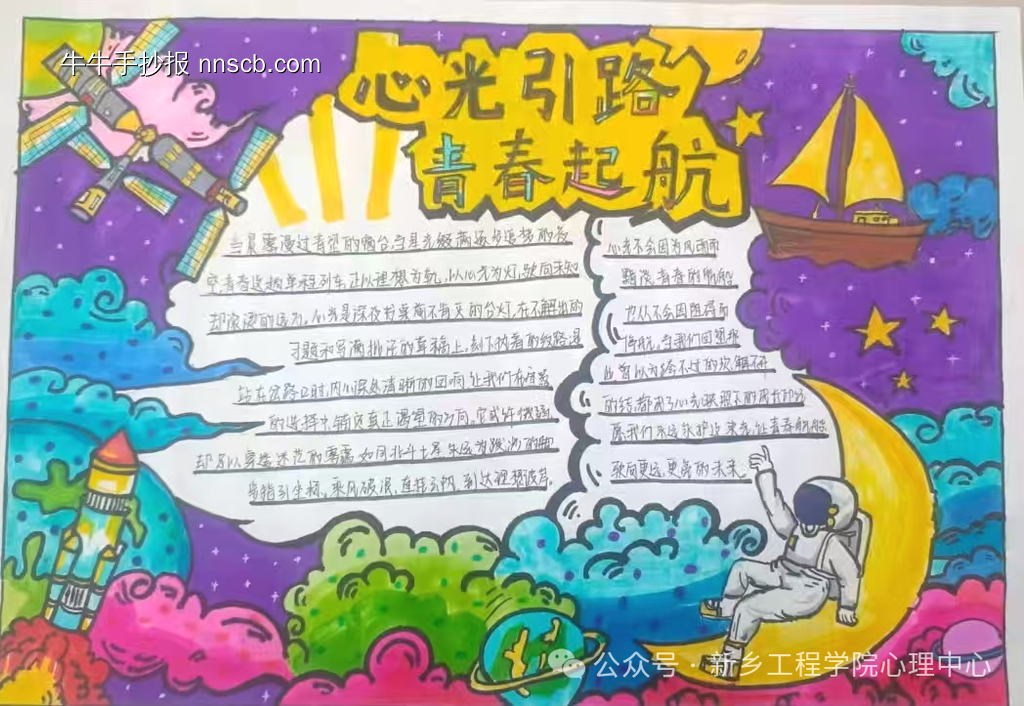 牛牛手抄报 nnscb.com
心光引路
青春起航
当晨雾漫过青望的窗台,当星光缀满逐步追梦的夜
空,青春这趟单程列车,正以理想为轨,以心光为灯,驶向未知
却滚烫的远方。心光是深夜书桌前不肯灭的台灯,在不解出的
习题和写满批注的草稿上,刻下执着的纹路;是
站在岔路口时,内心深处清晰的回响,让我们在
的选择中,锚定真正渴望的方向。它或许微弱,
却足以穿透迷茫的雾霭,如同北斗七星,永远为跋涉的
坐标,乘风破浪,直挂云帆,到达理想彼岸。
心光不会因为风雨而
黯淡,青春的帆船
也从不会因阻碍而
停航,当我们回望那
些曾以为跨不过的坎,解不开
的结,都成了心光映照下的成长印记
愿我们永远守护这束光,让青春的航船
驶向更远、更亮的未来。
公众号·新乡工程学院心理中心